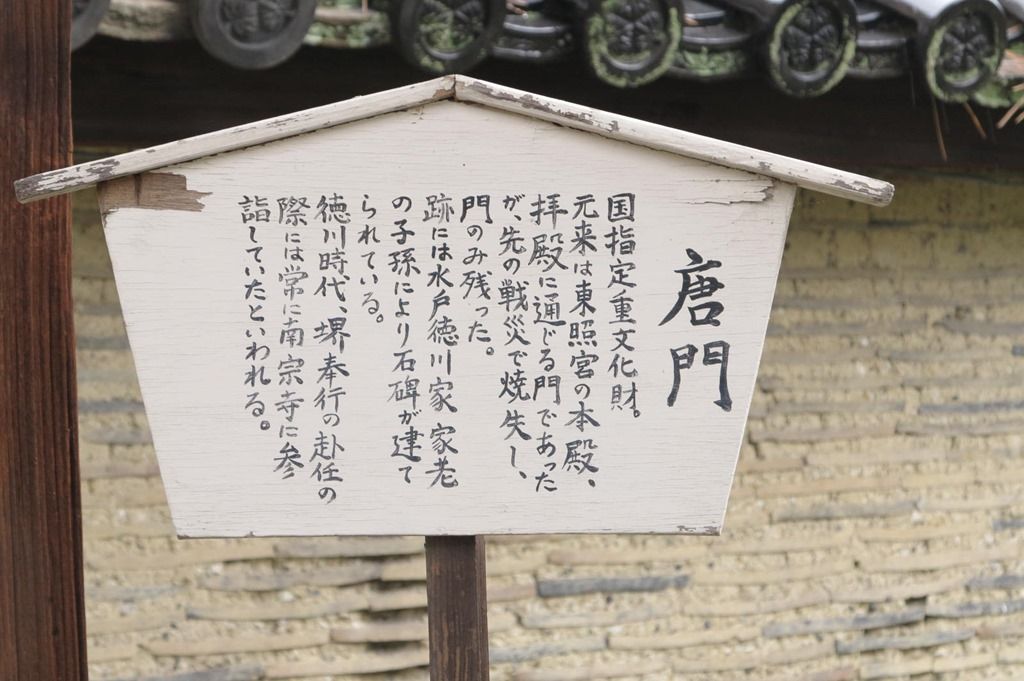 唐門
国指定重文化財。
元来は東照宮の本殿、
拝殿に通じる門であった
が、先の戦災で焼失し、
門のみ残った。
跡には水戸徳川家家老
の子孫により石碑が建て
られている。
徳川時代、堺奉行の赴任の
際には常に南宗寺に参
詣していたといわれる。